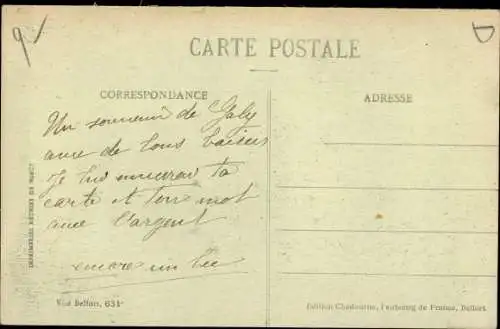 9
D
CARTE POSTALE
CORRESPONDANCE
ADRESSE
Un souvenir de Galy
avec de bons baisers
Je lui enverrai ta
carte et ton mot
avec l'argent
encore un bec
IMPRIMERIES RÉUNIES DE NANCY
Visé Belfort, 631
Edition Chadourne, Faubourg de France, Belfort